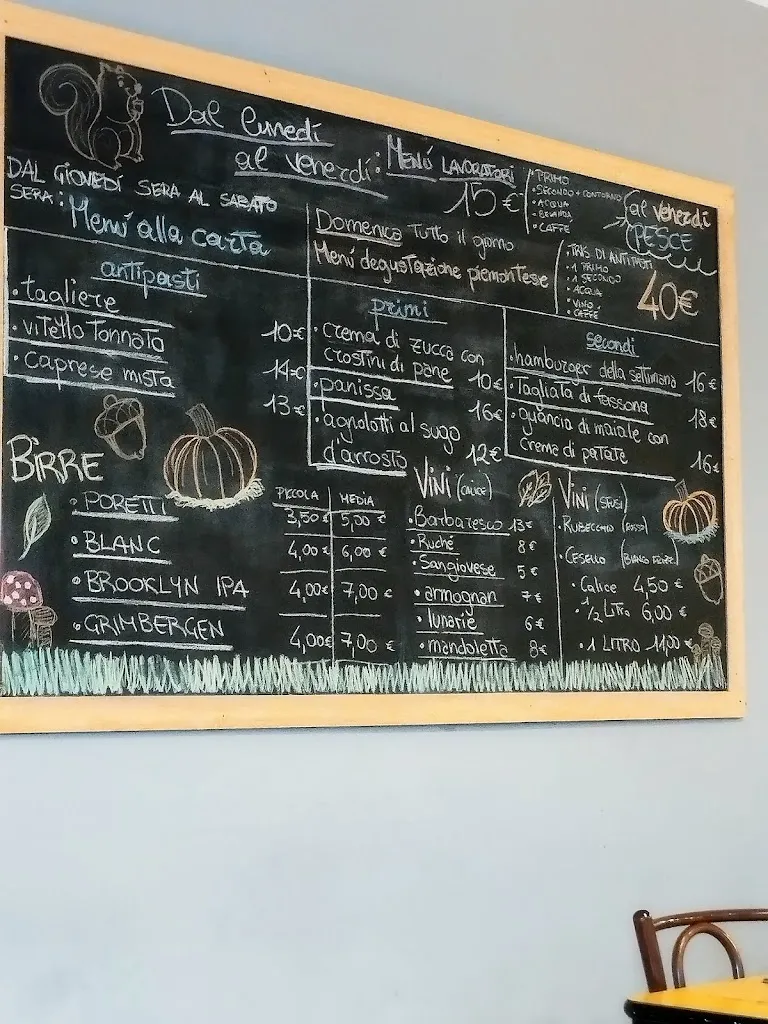 Dal lunedí
al venerdí: MENÚ LAVORATORI
15 €
• PRIMO
• SECONDO + CONTORNO
• ACQUA
• BEVANDA
• CAFFE
al venerdí
PESCE
DAL GIOVEDÍ SERA AL SABATO
SERA: Menú alla carta
Domenica Tutto il giorno
Menú degustazione piemontese
• TRIS DI ANTIPASTI
• 1 PRIMO
• 1 SECONDO
• ACQUA
• VINO
• CAFFE
40€
antipasti
• tagliere 10€
• vitello tonnato 14€
• caprese mista 13€
primi
• crema di zucca con
crostini di pane 10€
• panissa 16€
• agnolotti al sugo
d'arrosto 12€
secondi
• hamburger della settimana 16€
• Tagliata di fassona 18€
• guancia di maiale con
crema di patate 16€
BIRRE
PICCOLA MEDIA
• PORETTI 3,50€ 5,00€
• BLANC 4,00€ 6,00€
• BROOKLYN IPA 4,00€ 7,00€
• GRIMBERGEN 4,00€ 7,00€
VINI (CALICE)
• Barbaresco 13€
• Ruché 8€
• Sangiovese 5€
• armognan 7€
• lunarie 6€
• mandoletta 8€
VINI (SFUSI)
• RUBECCHIO (ROSSO)
• CESELLO (BIANCO
• Calice 4,50 €
• 1/2 LITRO 6,00 €
• 1 LITRO 11,00 €